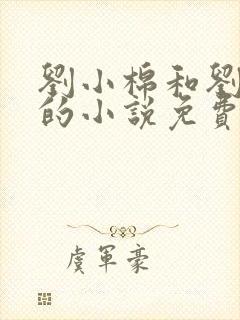 劉小棉和劉
的小説免費
虞軍豪